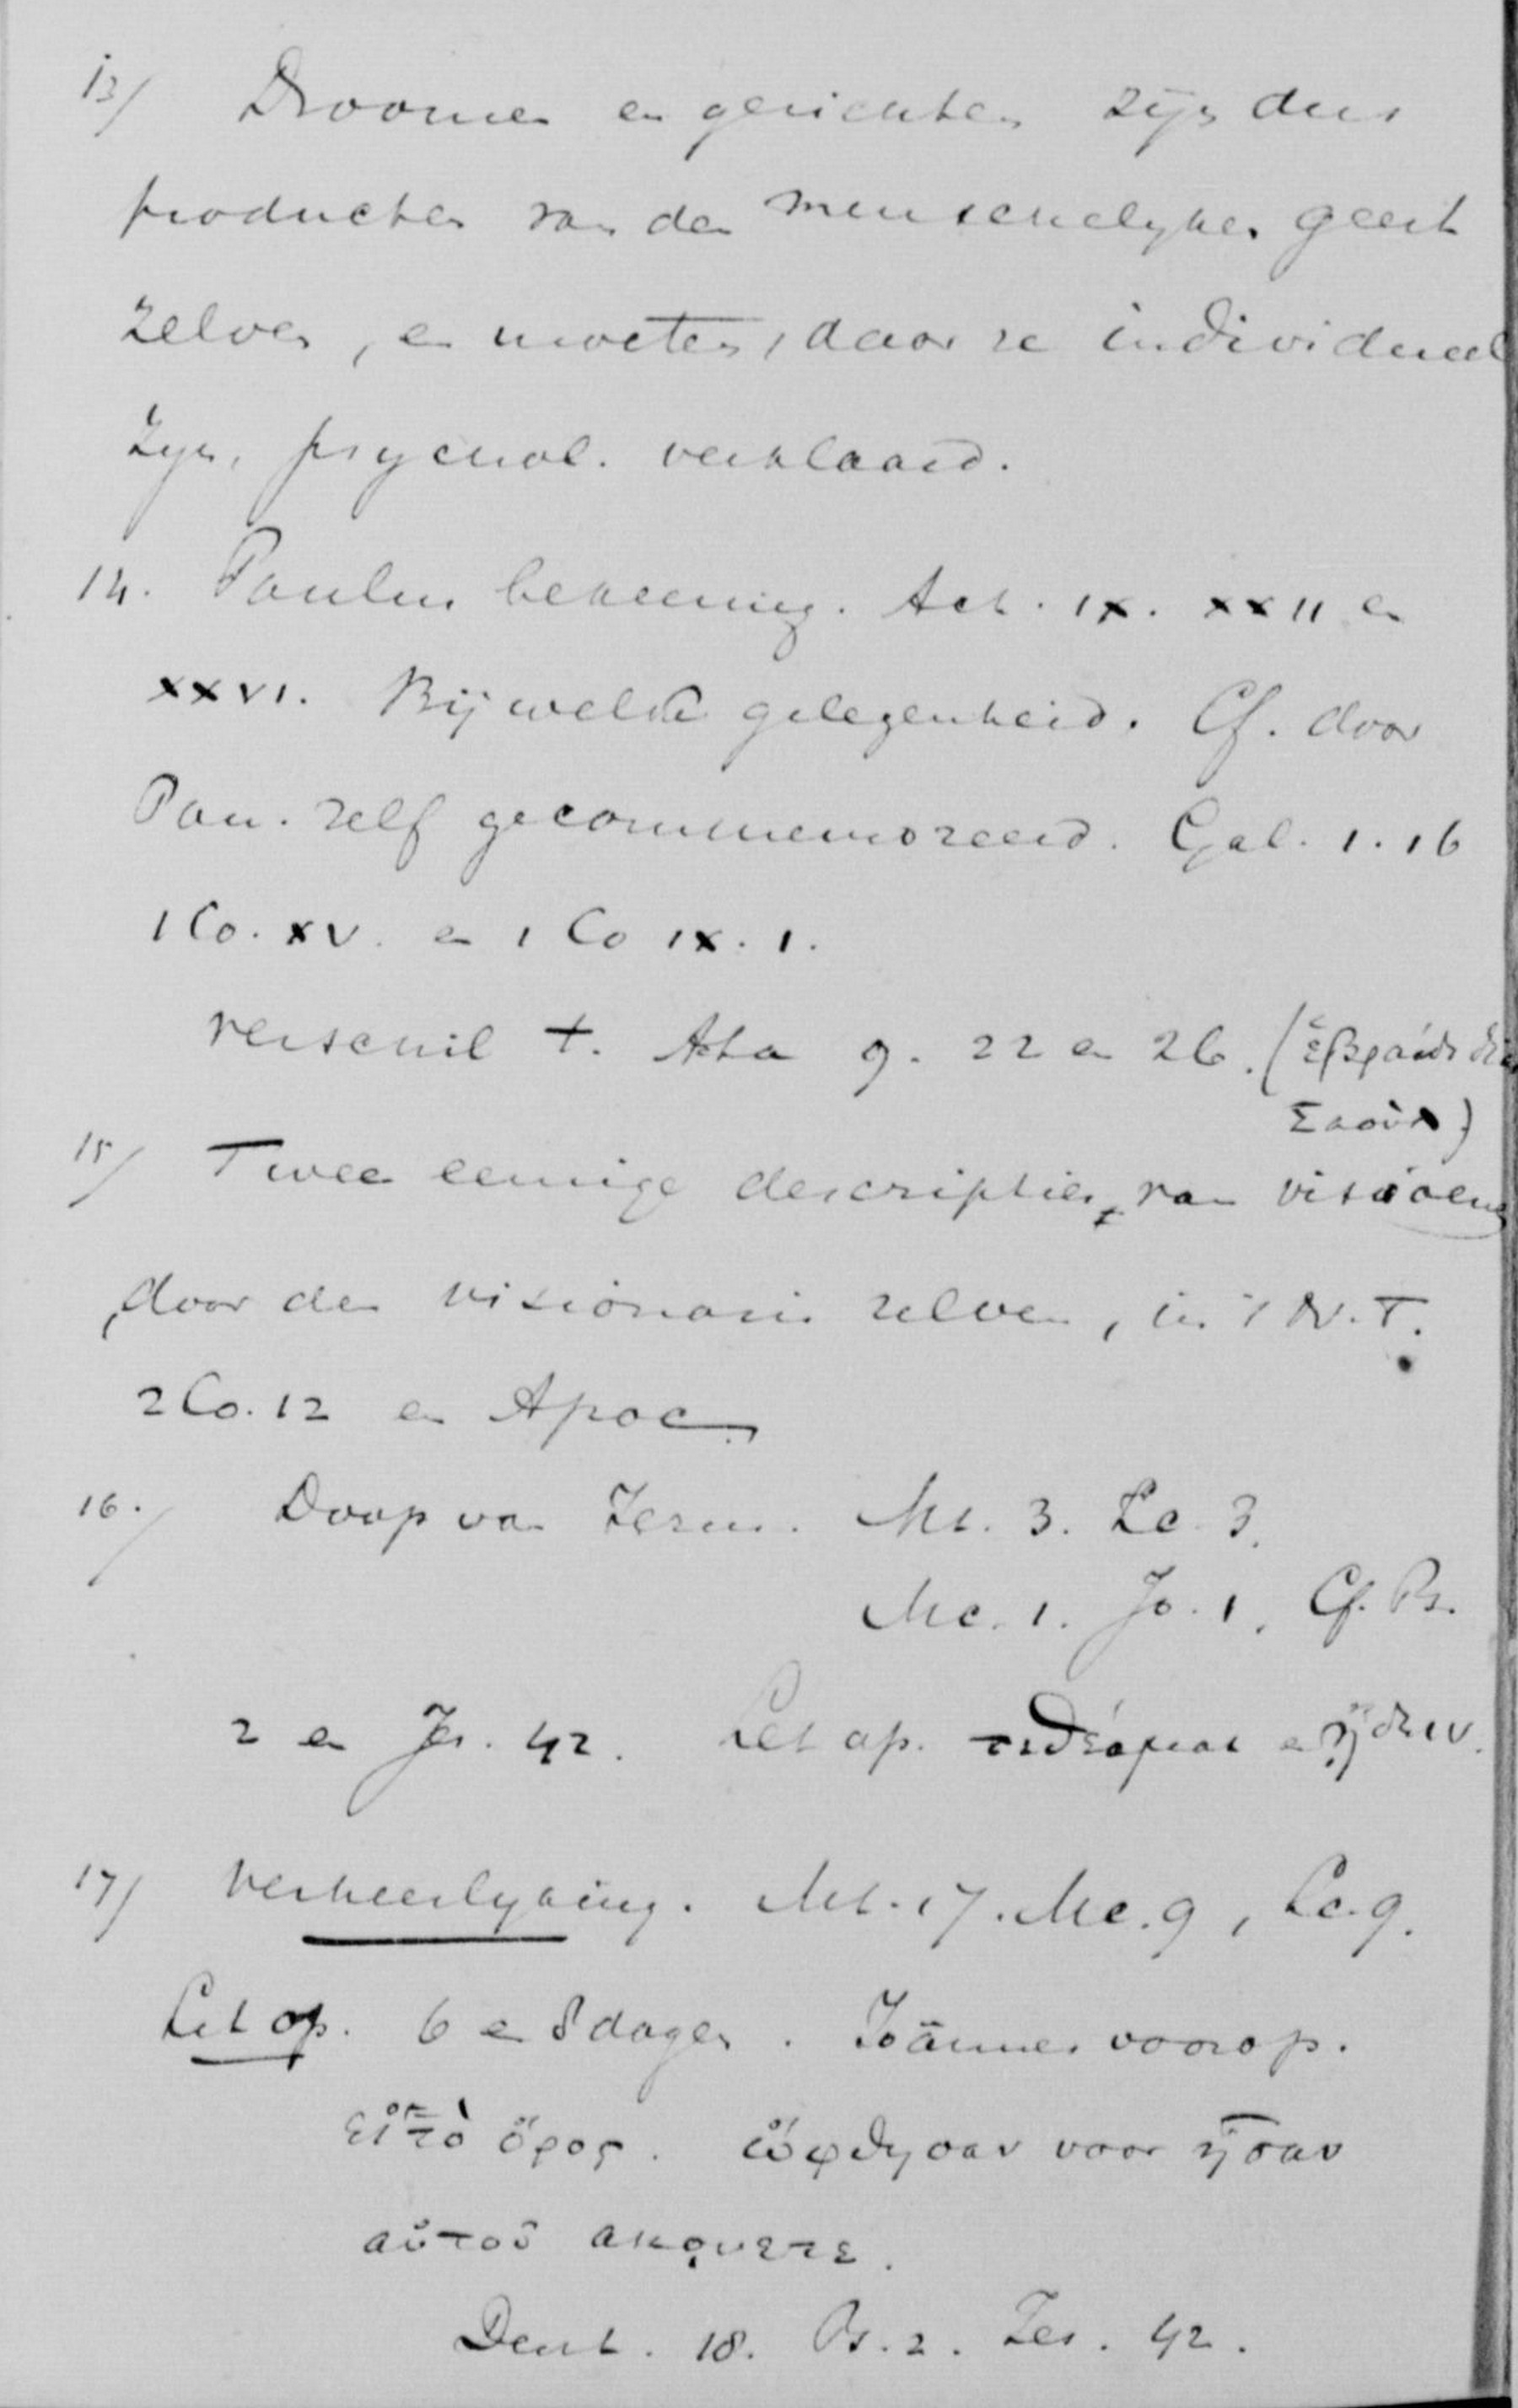 13/ Droomen en gezichten zijn dus
producten van den menschelyken geest
zelven, en moeten, daar ze individueel
zyn, psychol. verklaard.
14. Paulus bekeering. Act. IX. XXII en
XXVI. Bij welke gelegenheid. Cf. door
Pau. zelf gecommemoreerd. Gal. 1. 16
1 Co. XV. en 1 Co IX. 1.
verschil t. Acta 9. 22 en 26. (ἑβραΐδι
Σαούλ)
15/ Twee eenige descripties, van visioenen
door den visionaris zelven, in 't N.T.
2 Co. 12 en Apoc.
16./ Doop van Jezus. Mt. 3. Lc. 3.
Mc. 1. Jo. 1. Cf. Ps.
2 en Jes. 42. Let op. τεθέαμαι en ᾔδειν.
17/ Verheerlyking. Mt. 17. Mc. 9, Lc. 9.
Let op. 6 en 8 dagen. Joännes voorop.
εἰς τὸ ὄρος. ὤφθησαν voor ἦσαν
αὐτοῦ ακουετε.
Deut. 18. Ps. 2. Jes. 42.